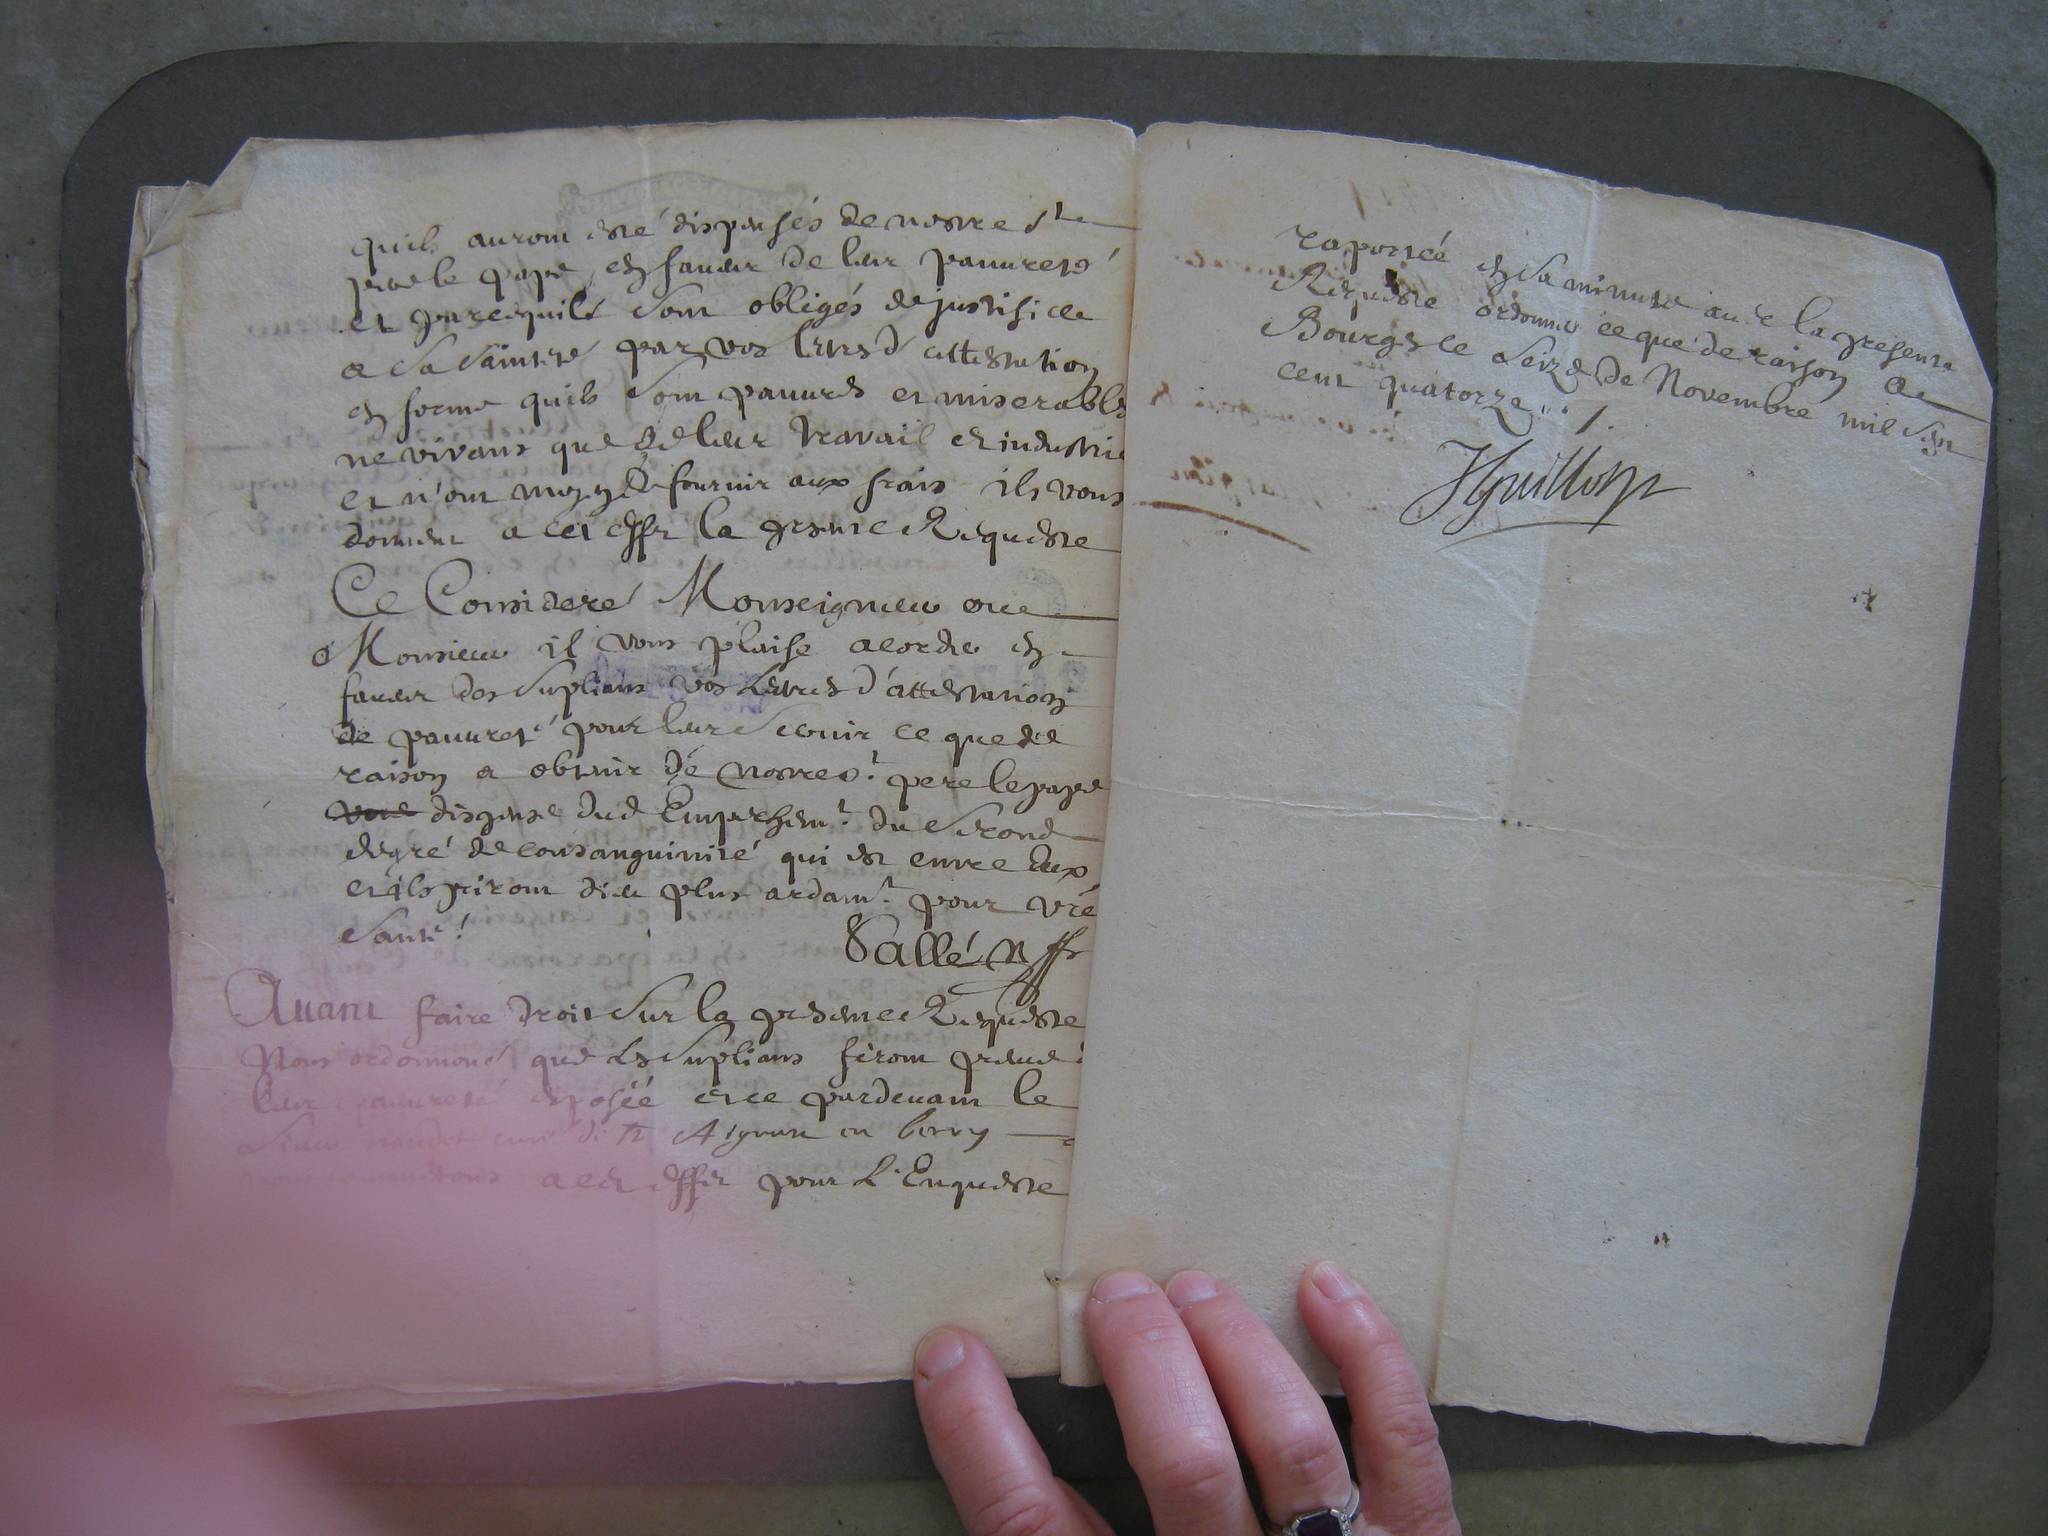 quils auront esté dispensés de nostre st
pere le pape en faueur de leur pauureté
et parcequils sont obligés de justifier
a sa sainteté par vos letres d'attestation
en forme quils sont pauures et miserables
ne vivans que de leur travail et industrie
et n'ont moyen de fournir aux frais ils vous
donnent a cet effet la presente Requeste
Ce Consideré Monseigneur ou
Monsieur il vous plaise acorder en
faueur des suplians vos Letres d'attestation
de pauureté pour leur seruir ce que de
raison a obtenir de nostre st pere le pape
dispense dud Empeschemt du second
degré de consanguinité qui est entre Eux
et ils priront dieu plus ardamt pour vre
santé
Sallé
Auant faire droit sur la presente Requeste
Nous ordonnons que les suplians feront preuue
leur pauureté exposéé et ce pardeuant le
sieur curé de st Aignan en berry
commettons a cet effet pour L'Enqueste
raportéé en sa minute auec la presente
Requeste ordonner ce que de raison a
Bourges le seize de Novembre mil sept
cent quatorze